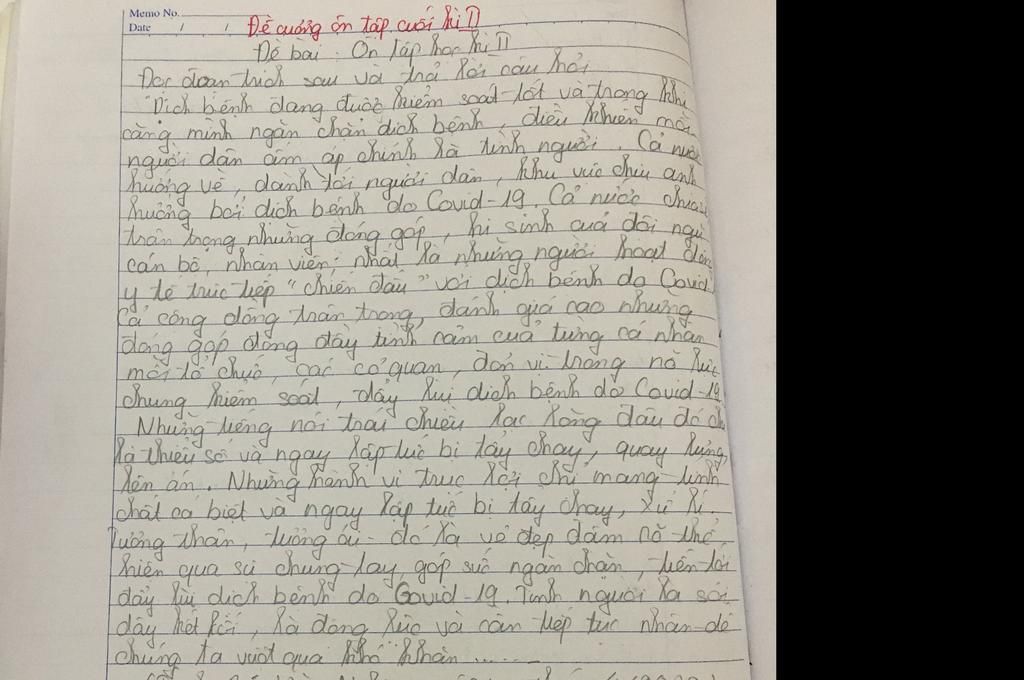 Memo No.
Date / /
Đề cương ôn tập cuối kì II
Đề bài: Ôn tập học kì II
Đọc đoạn trích sau và trả lời câu hỏi
"Dịch bệnh đang được kiểm soát tốt và trong khi
căng mình ngăn chặn dịch bệnh, điều khiến mỗi
người dân ấm áp chính là tình người. Cả nước
hướng về, dành tới người dân, khu vực chịu ảnh
hưởng bởi dịch bệnh do Covid-19. Cả nước
trân trọng những đóng góp, hi sinh của đội ngũ
cán bộ, nhân viên; nhất là những người hoạt động
y tế trực tiếp "chiến đấu" với dịch bệnh do Covid
Cả cộng đồng trân trọng, đánh giá cao những
đóng góp đong đầy tình cảm của từng cá nhân
mỗi tổ chức, các cơ quan, đơn vị trong nỗ lực
chung kiểm soát, đẩy lùi dịch bệnh do Covid-19
Những tiếng nói trái chiều lạc lõng đâu đó chỉ
là thiểu số và ngay lập tức bị tẩy chay, quay lưng,
lên án. Những hành vi trục lợi chỉ mang tính
chất cá biệt và ngay lập tức bị tẩy chay, xử lí.
Tương thân, tương ái - đó là vẻ đẹp đậm nó thể
hiện qua sự chung tay góp sức ngăn chặn, tiến tới
đẩy lùi dịch bệnh do Covid-19. Tình người là sợi
dây kết nối, là động lực và cần tiếp tục nhân để
chúng ta vượt qua khó khăn......